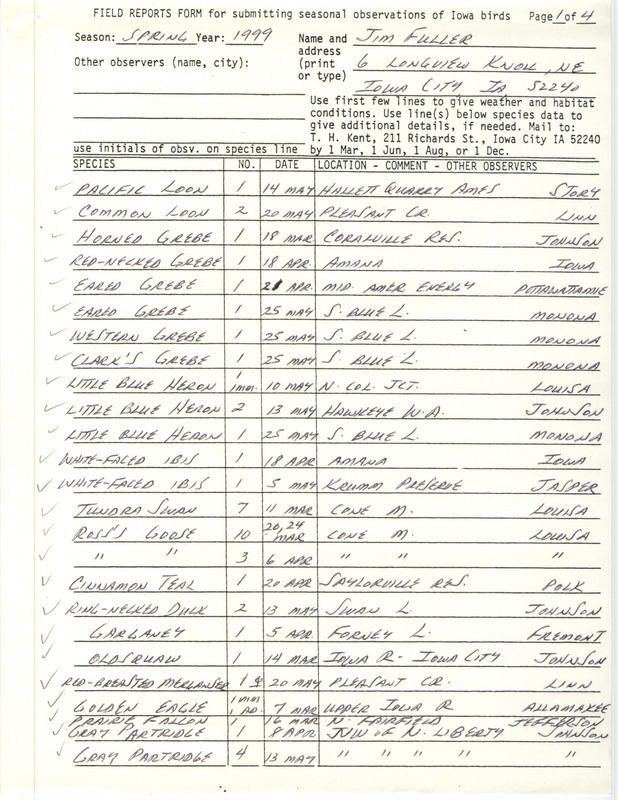 FIELD REPORTS FORM for submitting seasonal observations of Iowa birds Page 1 of 4
Season: SPRING Year: 1999 Name and JIM FULLER
address
Other observers (name, city): (print 6 LONGVIEW KNOLL, NE
or type) IOWA CITY IA 52240
Use first few lines to give weather and habitat
conditions. Use line(s) below species data to
give additional details, if needed. Mail to:
T. H. Kent, 211 Richards St., Iowa City IA 52240
use initials of obsv. on species line by 1 Mar, 1 Jun, 1 Aug, or 1 Dec.
SPECIES NO. DATE LOCATION - COMMENT - OTHER OBSERVERS
✓ PACIFIC LOON 1 14 MAY HALLETT QUARRY AMES STORY
✓ COMMON LOON 2 20 MAY PLEASANT CR. LINN
✓ HORNED GREBE 1 18 MAR CORALVILLE RES. JOHNSON
✓ RED-NECKED GREBE 1 18 APR AMANA IOWA
✓ EARED GREBE 1 21 APR MID. AMER ENERGY POTTAWATTAMIE
✓ EARED GREBE 1 25 MAY S. BLUE L. MONONA
✓ WESTERN GREBE 1 25 MAY S. BLUE L. MONONA
✓ CLARK'S GREBE 1 25 MAY S. BLUE L. MONONA
✓ LITTLE BLUE HERON 1 imm. 10 MAY N. COL. JCT. LOUISA
✓ LITTLE BLUE HERON 2 13 MAY HAWKEYE W.A. JOHNSON
✓ LITTLE BLUE HERON 1 25 MAY S. BLUE L. MONONA
✓ WHITE-FACED IBIS 1 18 APR AMANA IOWA
✓ WHITE-FACED IBIS 1 5 MAY KRUMM PRESERVE JASPER
✓ TUNDRA SWAN 7 11 MAR CONE M. LOUISA
✓ ROSS'S GOOSE 10 20, 24 MAR CONE M. LOUISA
✓ " " 3 6 APR " " "
CINNAMON TEAL 1 20 APR SAYLORVILLE RES. POLK
✓ RING-NECKED DUCK 2 13 MAY SWAN L. JOHNSON
✓ GARGANEY 1 5 APR FORNEY L. FREMONT
✓ OLDSQUAW 1 14 MAR IOWA R - IOWA CITY JOHNSON
✓ RED-BREASTED MERGANSER 1 ♀ 20 MAY PLEASANT CR. LINN
✓ GOLDEN EAGLE 1 imm 1 AD. 7 MAR UPPER IOWA R ALLAMAKEE
✓ PRAIRIE FALCON 1 16 MAR N. FAIRFIELD JEFFERSON
✓ GRAY PARTRIDGE 1 8 APR JUW OF N. LIBERTY JOHNSON
✓ GRAY PARTRIDGE 4 13 MAY " " " " "